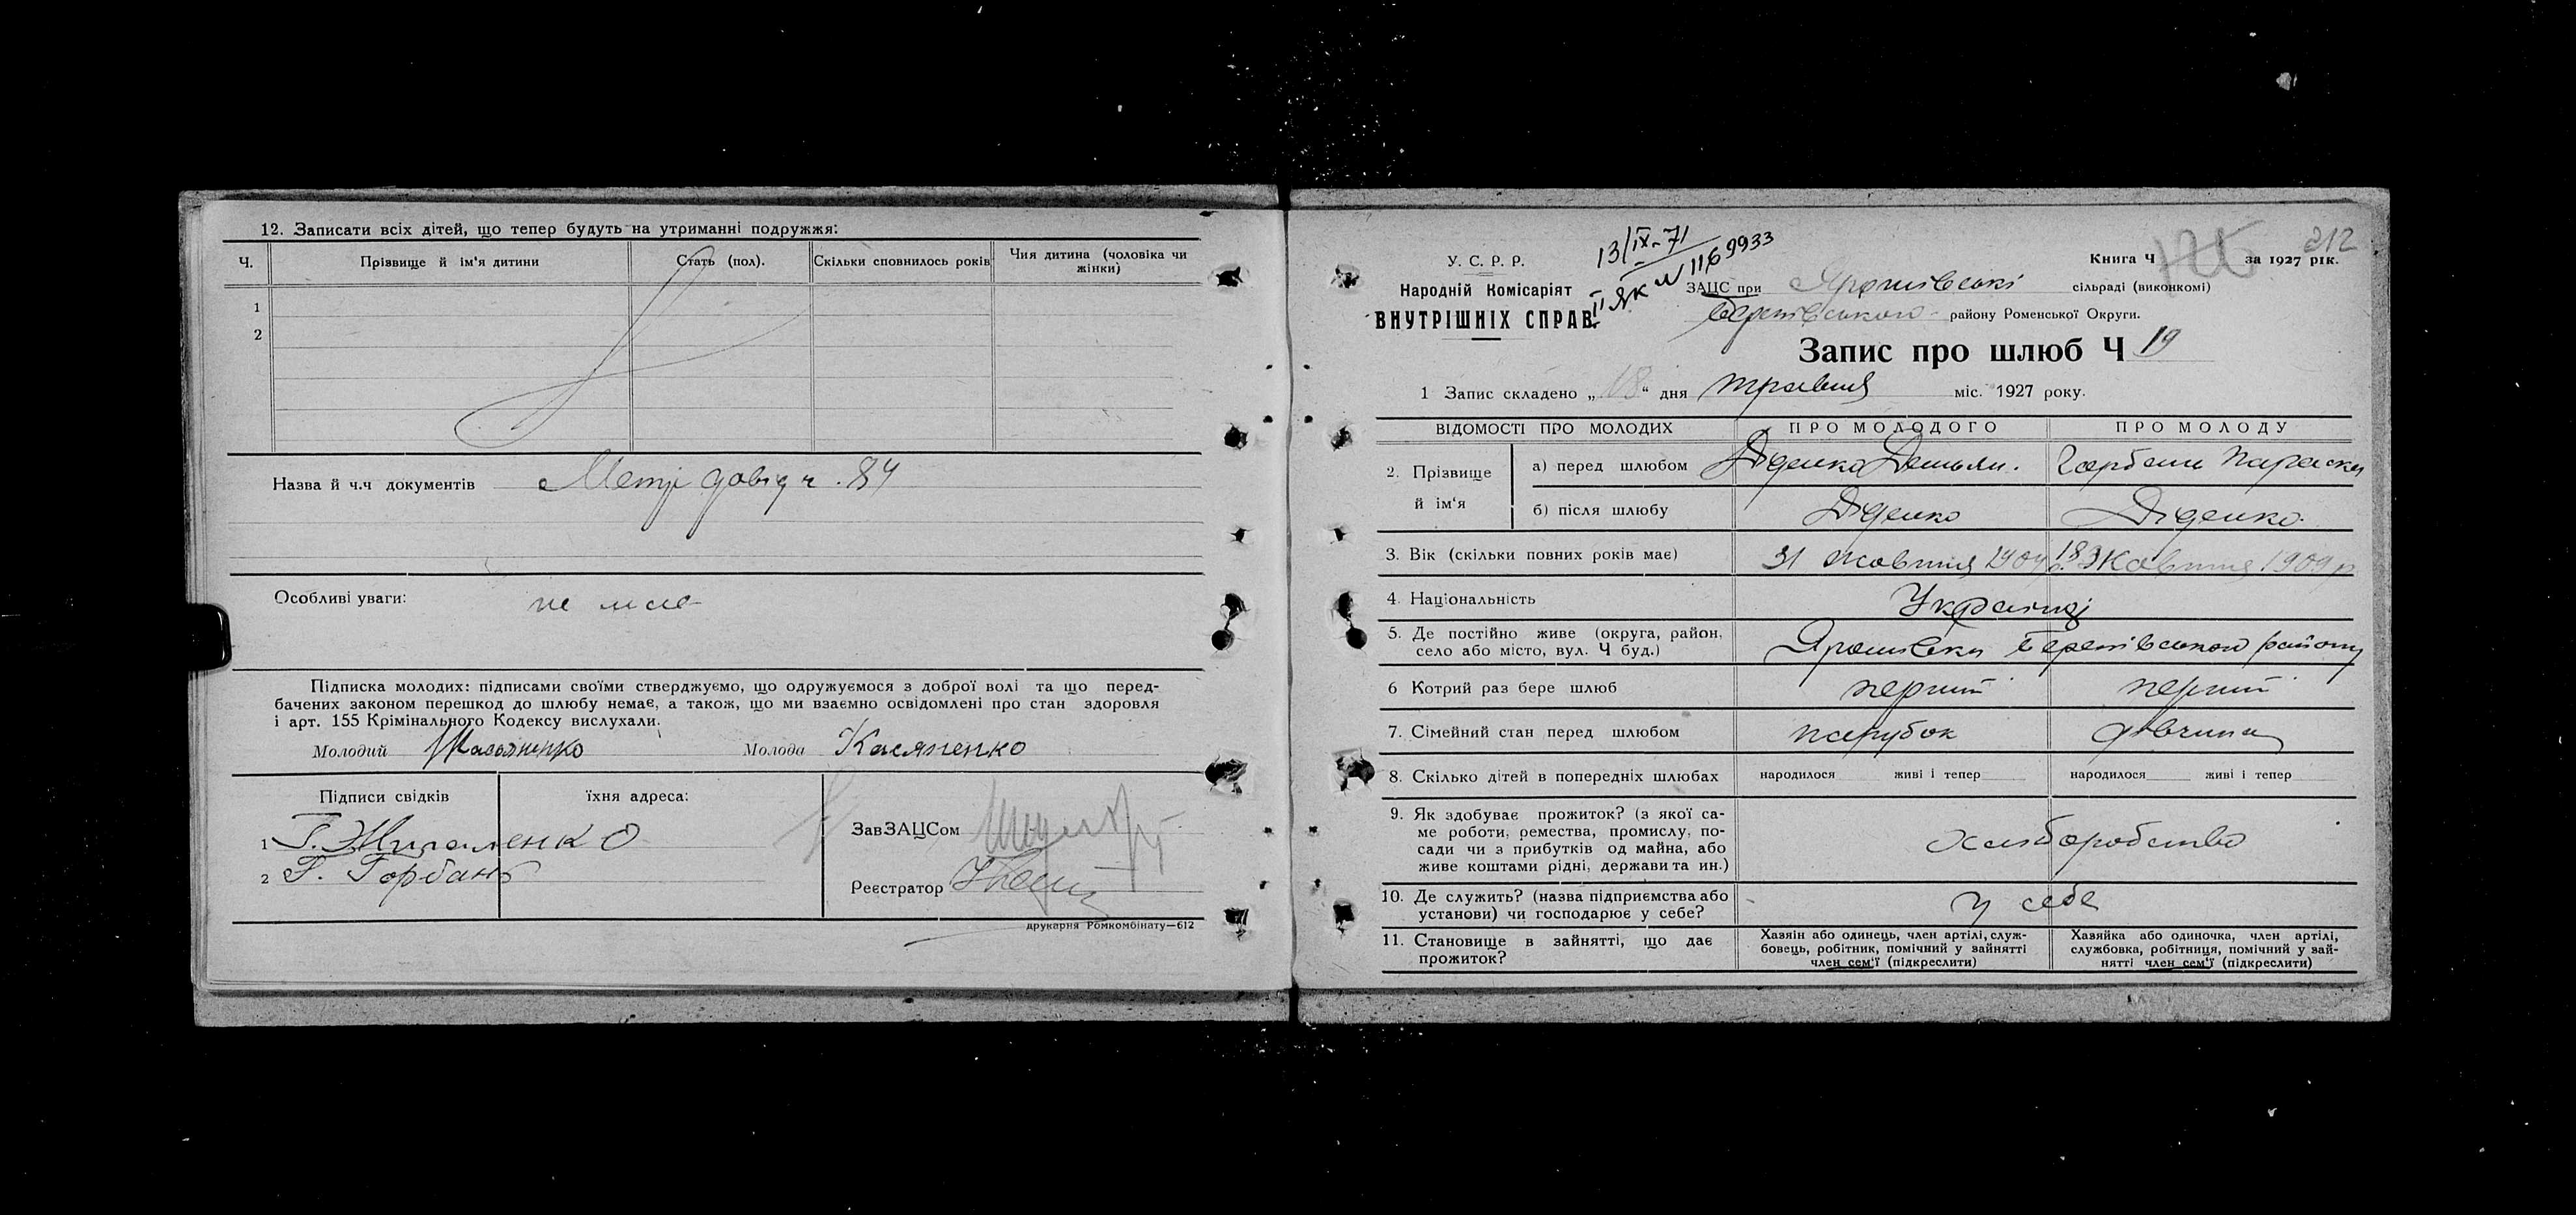 12. Записати всіх дітей, що тепер будуть на утриманні подружжя:
Ч. Прізвище й ім'я дитини Стать (пол). Скільки сповнилось років Чия дитина (чоловіка чи жінки)
1
2
Назва й ч.ч документів Метр довідч. 84
Особливі уваги: не має
Підписка молодих: підписами своїми стверджуємо, що одружуємося з доброї волі та що перед-
бачених законом перешкод до шлюбу немає, а також, що ми взаємно освідомлені про стан здоровля
і арт. 155 Крімінального Кодексу вислухали.
Молодий Касьяненко Молода Касяненко
Підписи свідків їхня адреса:
1 Г.
2 Г. Горбань
ЗавЗАЦСом
Реєстратор
друкарня Ромкомбінату—612
212
13/IX-71
II ЯК № 1169933
У. С. Р. Р.
Народній Комісаріят
ВНУТРІШНІХ СПРАВ.
Книга Ч за 1927 рік.
ЗАЦС при Ярошівські сільраді (виконкомі)
Беретівського району Роменської Округи.
Запис про шлюб Ч 19
1 Запис складено „18“ дня травня міс. 1927 року.
ВІДОМОСТІ ПРО МОЛОДИХ ПРО МОЛОДОГО ПРО МОЛОДУ
2. Прізвище й ім'я
а) перед шлюбом Діденко Демьян. Горбань Параска
б) після шлюбу Діденко Діденко.
3. Вік (скільки повних років має) 31 жовтня 1904 р. 18 Жовтня 1909 р
4. Національність Українці
5. Де постійно живе (округа, район, село або місто, вул. Ч буд.) Ярошівка Беретівського району
6 Котрий раз бере шлюб перший перший
7. Сімейний стан перед шлюбом парубок дівчина
8. Скілько дітей в попередніх шлюбах народилося живі і тепер народилося живі і тепер
9. Як здобуває прожиток? (з якої са-
ме роботи, ремества, промислу, по-
сади чи з прибутків од майна, або
живе коштами рідні, держави та ин.) хліборобство
10. Де служить? (назва підприємства або
установи) чи господарює у себе? у себе
11. Становище в зайнятті, що дає
прожиток?
Хазяін або одинець, член артілі, служ-
бовець, робітник, помічний у зайнятті
член сем'ї (підкреслити)
Хазяйка або одиночка, член артілі,
службовка, робітниця, помічний у зай-
нятті член сем'ї (підкреслити)